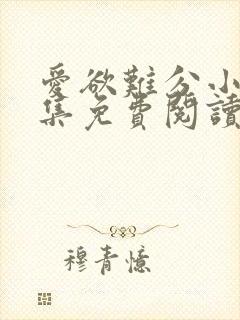 愛欲難分小
集免費閱讀
穆青憶